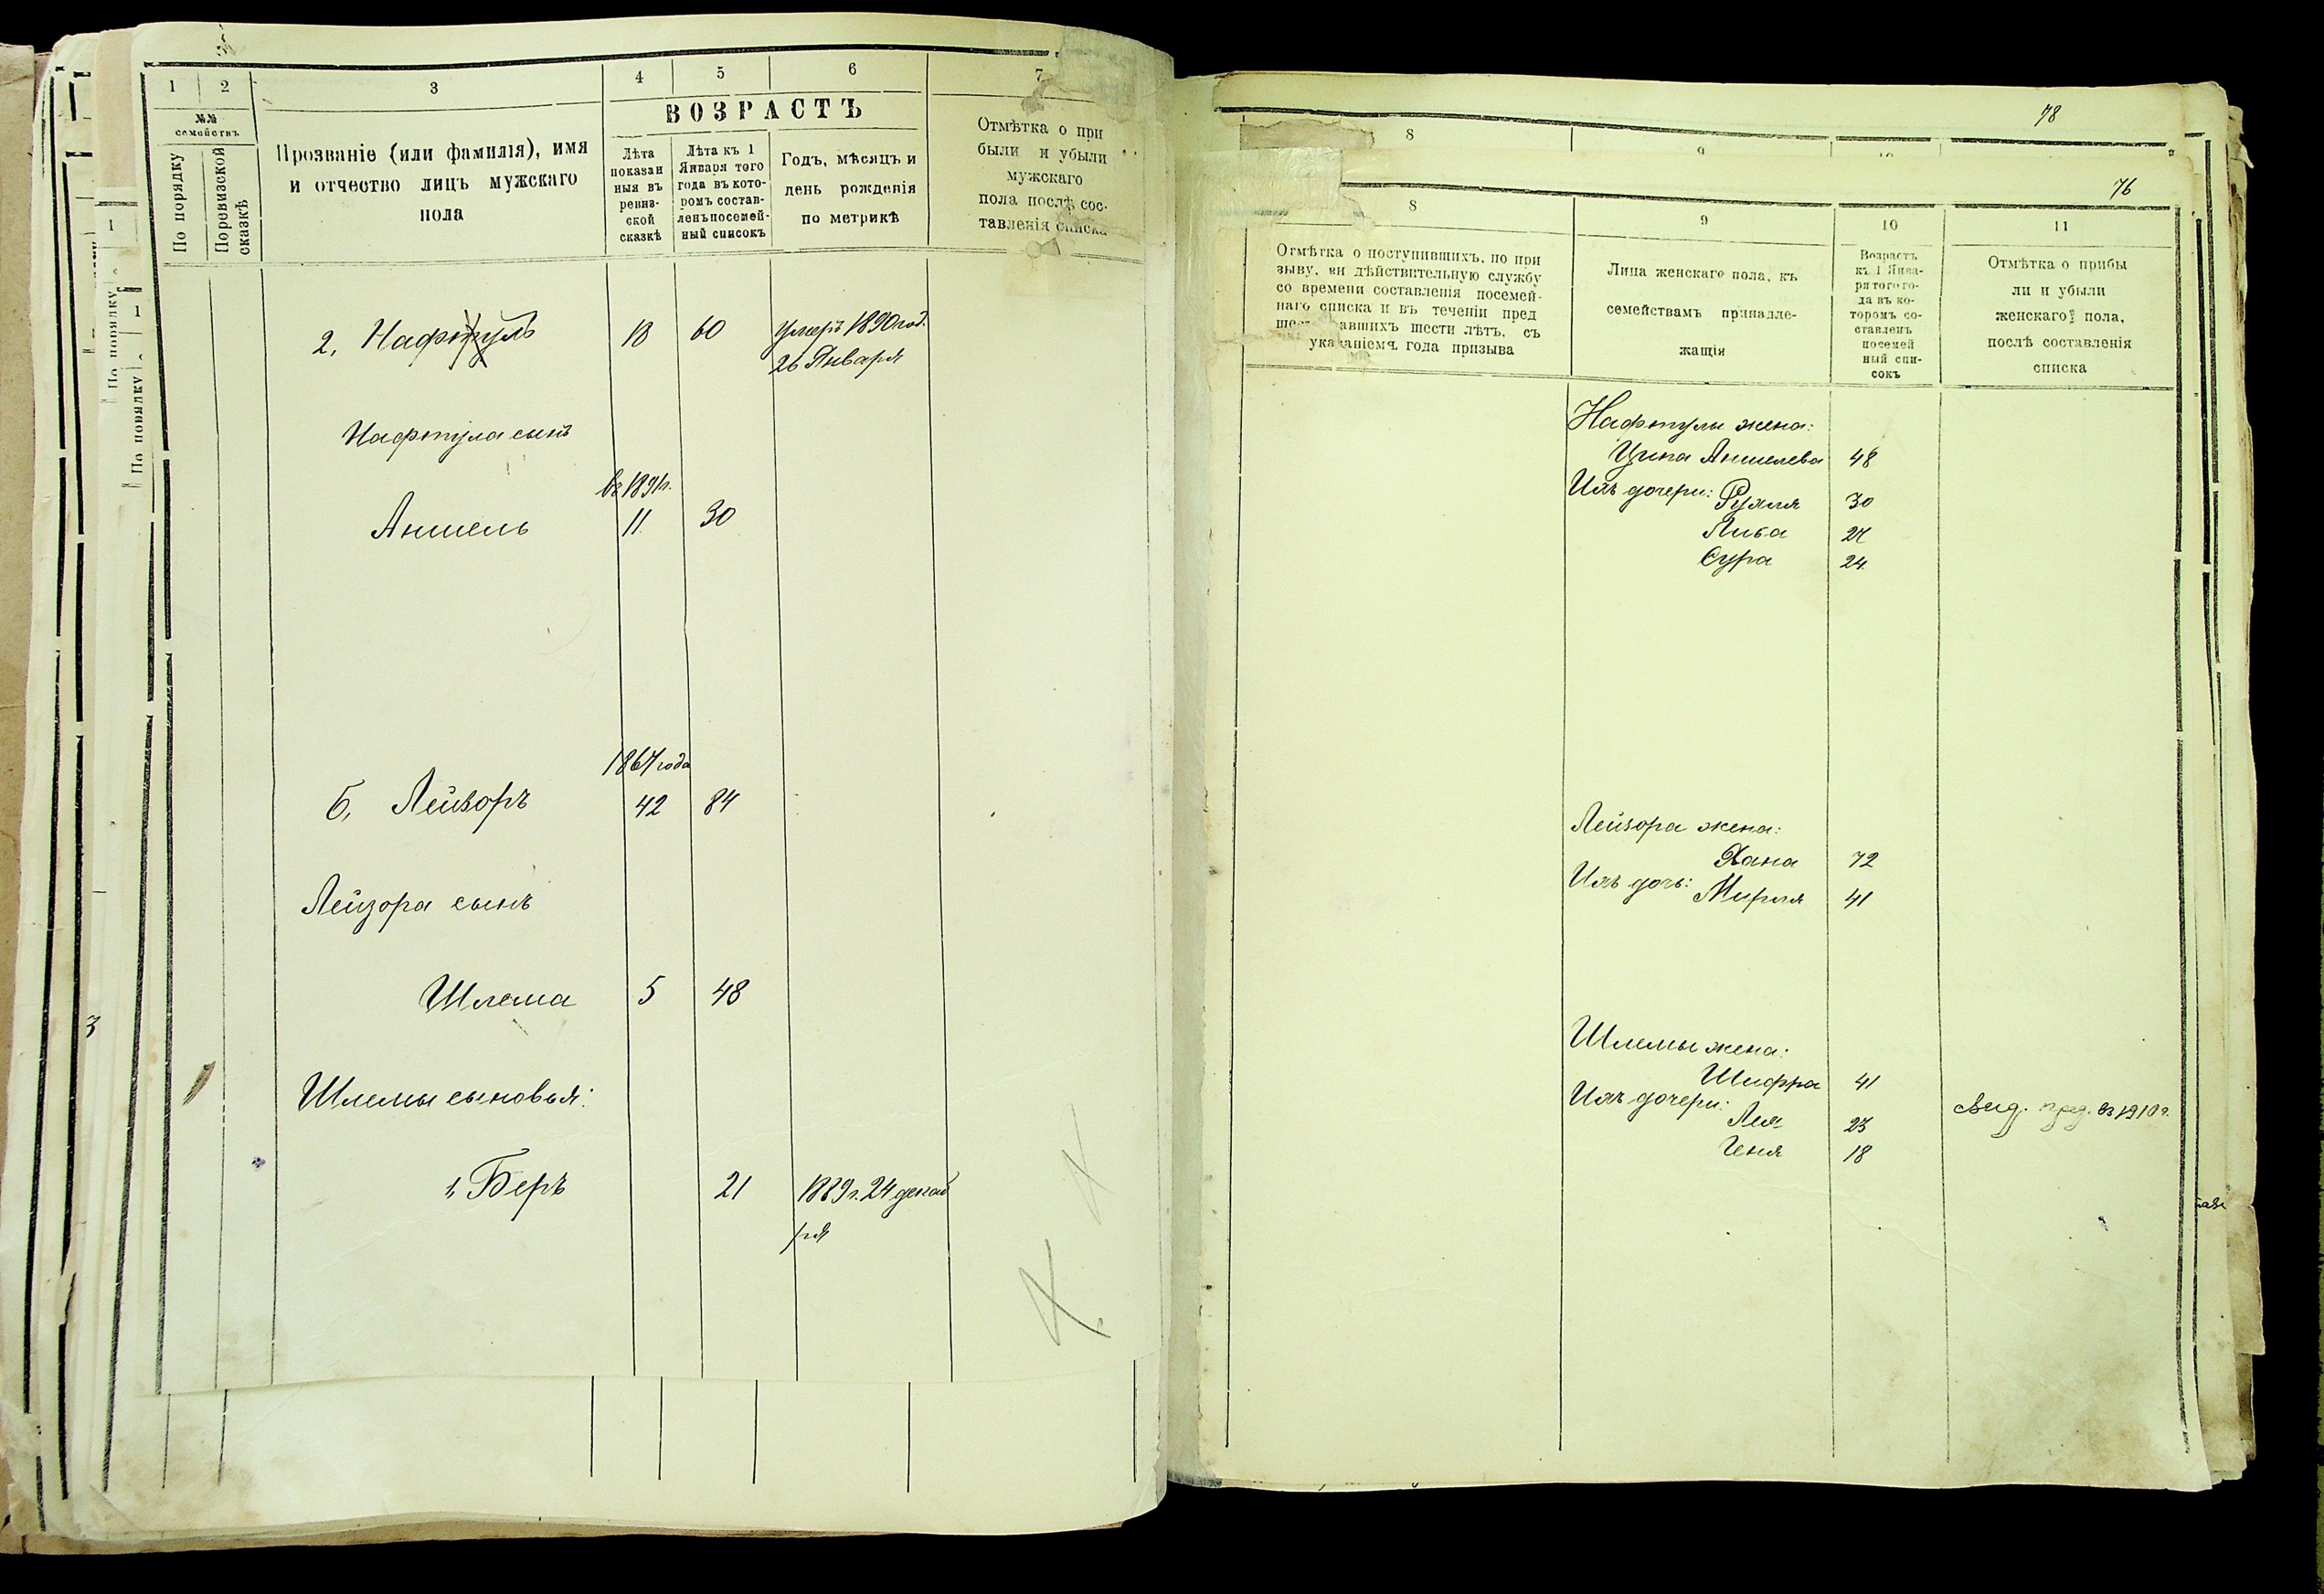 1 2 3 4 5 6 7
№№ семействъ
По порядку
По ревизской сказкѣ
Прозваніе (или фамилія), имя
и отчество лицъ мужскаго
пола
ВОЗРАСТЪ
Лѣта
показан
ныя въ
ревиз-
ской
сказкѣ
Лѣта къ 1
Января того
года въ кото-
ромъ состав-
ленъ посемей-
ный списокъ
Годъ, мѣсяцъ и
день рожденія
по метрикѣ
Отмѣтка о при
были и убыли
мужскаго
пола послѣ сос-
тавленія списка
2, Нафтулъ 18 60 умеръ 1890 год.
26 Января
Нафтула сынъ
въ 1891г.
Аншель 11 30
1867 года
б, Лейзоръ 42 84
Лейзора сынъ
Шлема 5 48
Шлемы сыновья:
1, Беръ 21 1889 г. 24 декаб
ря
78
8 9 10
76
8 9 10 11
Отмѣтка о поступившихъ, по при
зыву, на дѣйствительную службу
со времени составленія посемей-
наго списка и въ теченіи пред
авшихъ шести лѣтъ, съ
указаніемъ года призыва
Лица женскаго пола, къ
семействамъ принадле-
жащія
Возрастъ
къ 1 Янва-
ря того го-
да въ ко-
торомъ со-
ставленъ
посемей
ный спи-
сокъ
Отмѣтка о прибы
ли и убыли
женскаго пола,
послѣ составленія
списка
Нафтулы жена:
Ципа Аншелева 48
Ихъ дочери: Рухля 30
Либа 27
Сура 24
Лейзора жена:
Хана 72
Ихъ дочь: Мирля 41
Шлемы жена:
Шифра 41
Ихъ дочери:
Лея 23 свид. пред. въ 1910 г.
Геня 18